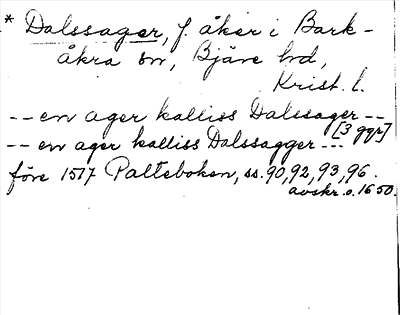 * Dalssager, f. åker i Bark-
åkra sn, Bjäre hd,
Krist. l.
-- en ager kalliss Dalssager --
[3 ggr]
-- en ager kalliss Dalssagger ---
före 1517 Palteboken, ss. 90, 92, 93, 96.
avskr. o. 1650.